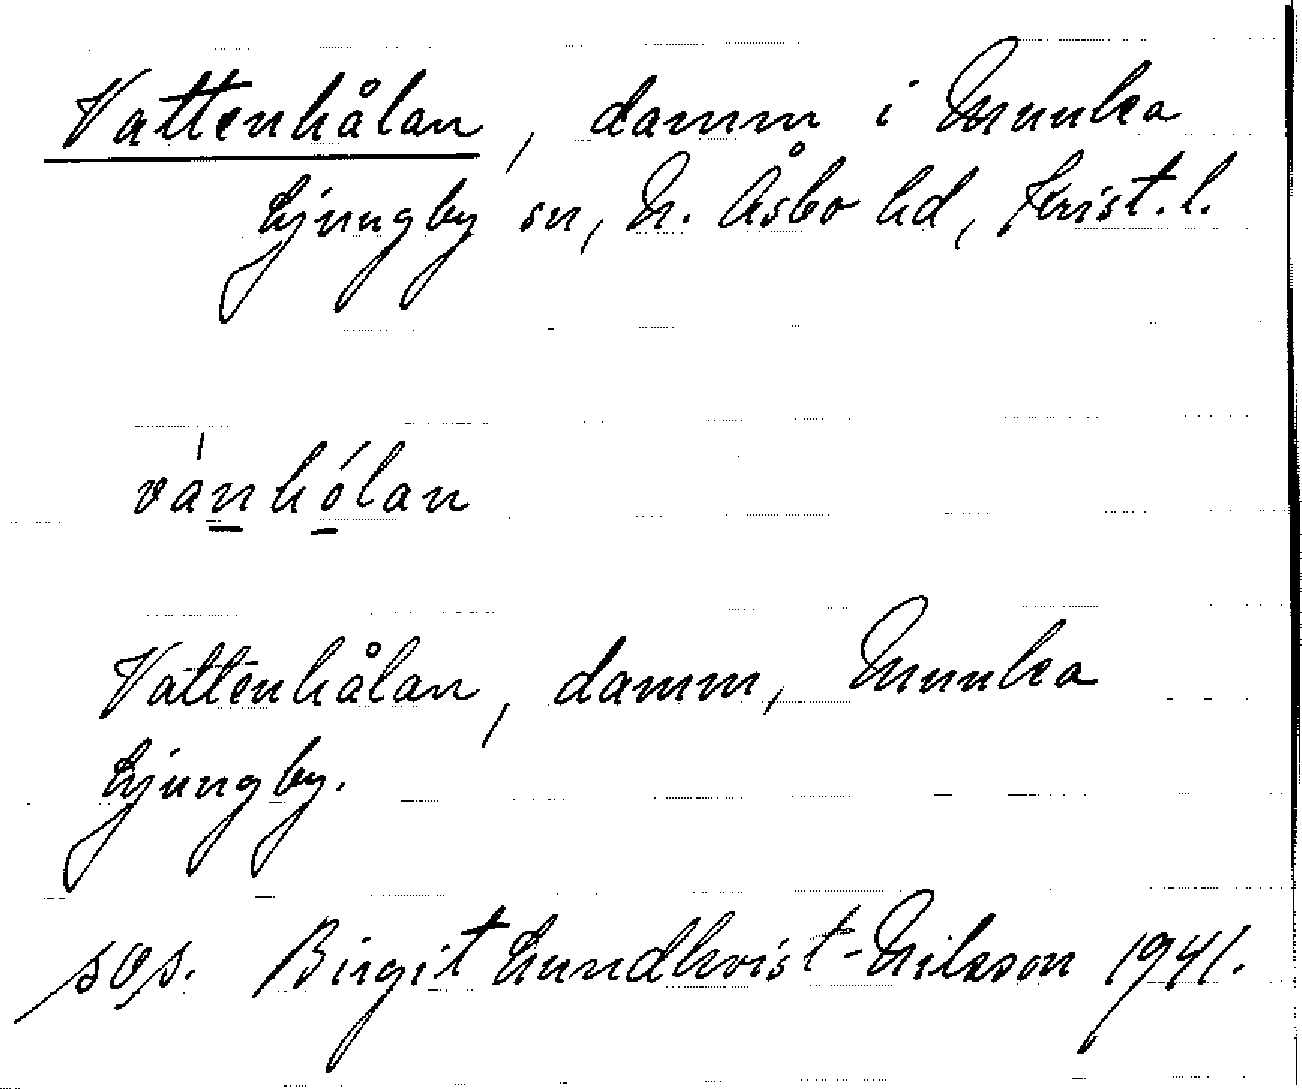 Vattenhålan, damm i Munka
Ljungby sn, N. Åsbo hd, Krist. l.
va̍nhólan
Vattenhålan, damm, Munka
Ljungby.
sås. Birgit Lundkvist-Nilsson 1941.